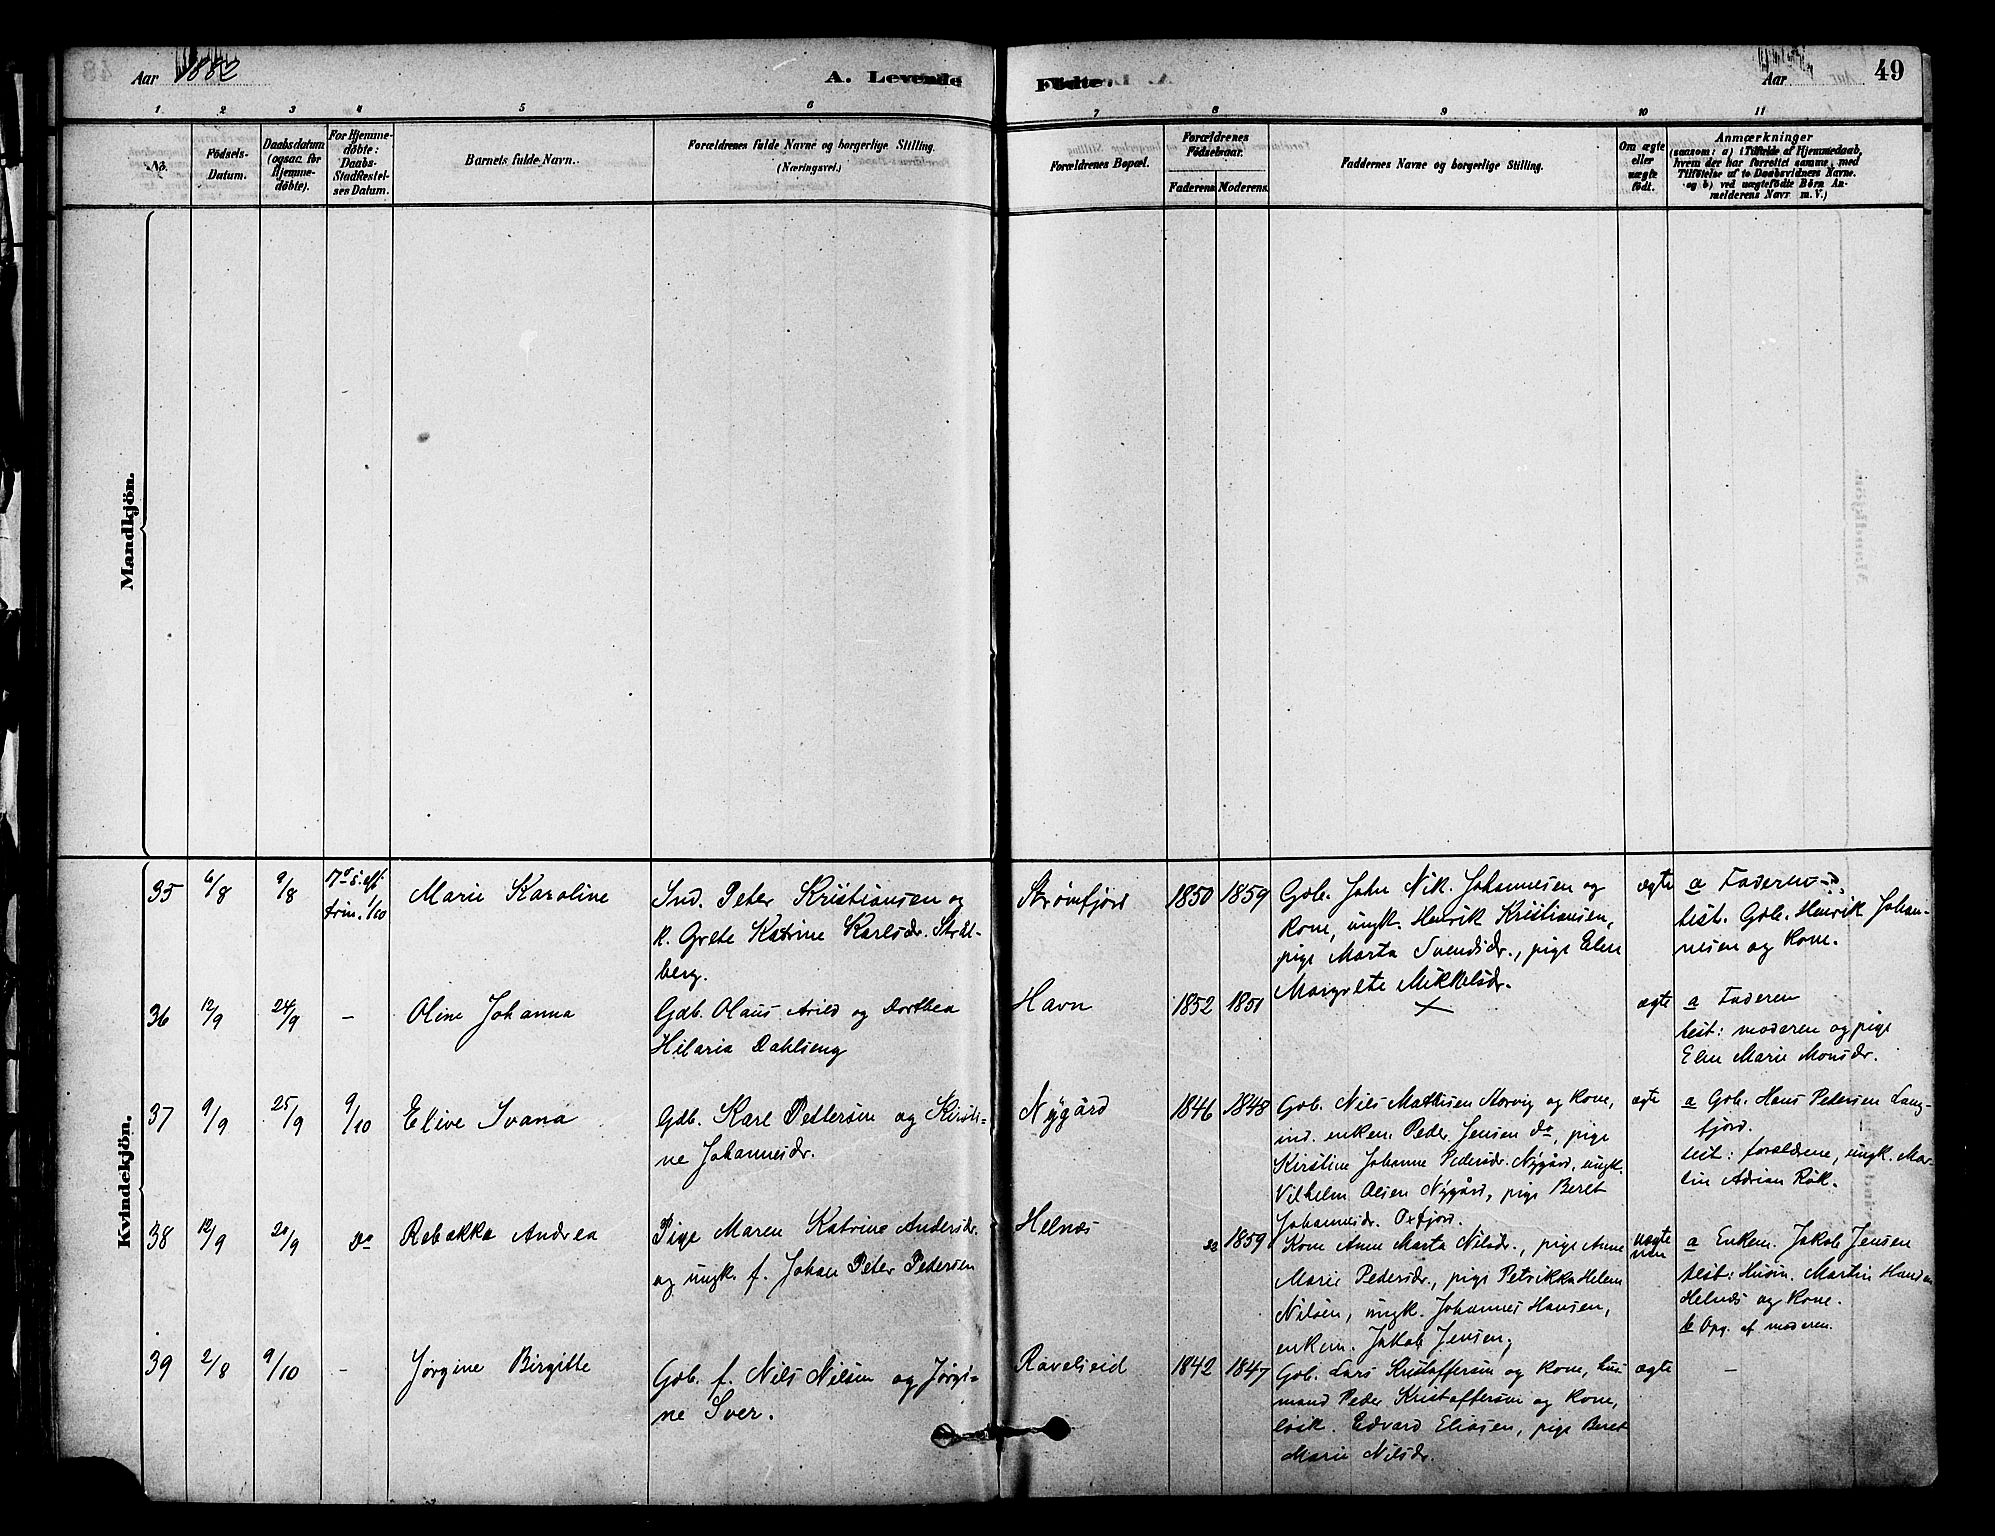 Aar 1882
A. Levende
Födte.
Aar
49
1 2 3 4 5 6 7 8 9 10 11
No.
Födsels-
Datum.
Daabsdatum
(ogsaa for
Hjemme-
döbte).
For Hjemme-
döbte:
Daabs-
Stadfæstel-
ses Datum.
Barnets fulde Navn.
Forældrenes fulde Navne og borgerlige Stilling.
(Næringsvei.)
Forældrenes Bopæl.
Forældrenes
Födselsaar.
Faderens. Moderens.
Faddernes Navne og borgerlige Stilling.
Om ægte
eller
uægte
födt.
Anmærkninger
(saasom: a) i Tilfælde af Hjemmedaab,
hvem der har forrettet samme, med
Tilföielse af to Daabsvidners Navne.
og b) ved uægtefödte Börn An-
melderens Navn m. V.)
Mandkjön.
Kvindekjön.
35 6/8 9/8 17de s. eft.
trin. 1/10
Marie Karoline
Ind. Peter Kristiansen og
k. Grete Katrine Karlsdr. Strål-
berg.
Strömfjord
1850 1859
Gdb. John Nik. Johannesen og
kone, ungk. Henrik Kristiansen,
pige Marta Svendsdr., pige Elen
Margrete Mikkelsdr.
ægte
a Faderen
test. Gdb. Henrik Johan-
nesen og kone.
36 12/9 24/9 -
Oline Johanna
Gdb. Olaus Arild og Dorthea
Hilaria Dahlseng
Havn
1852 1851
ægte
a Faderen
test: moderen og pige
Elen Marie Monsdr.
37 9/9 25/9 9/10
Elive Ivana
Gdb. Karl Pettersen og Kirsti-
ne Johannesdr.
Nygård
1846 1848
Gdb. Nils Mathisen Storvig og kone,
ind. enkem. Peder Jensen do, pige
Kirstine Johanne Pedersdr. Nygård, ungk.
Vilhelm Olsen Nygård, pige Beret
Johannesdr. Oxfjord.
ægte
a Gdb. Hans Pedersen Lang-
fjord.
test: forældrene, ungk. Mar-
tin Adrian Rök.
38 12/9 20/9 do
Rebekka Andrea
Pige Maren Katrine Andersdr.
og ungk. f. Johan Peter Pedersen
Helnæs
32 1859
Kone Anne Marta Nilsdr., pige Anne
Marie Pedersdr., pige Petrikka Helene
Nilsen, ungk. Johannes Hansen,
enkem. Jakob Jensen,
uægte
a Enkem. Jakob Jensen
test: Husm. Martin Hansen
Helnæs og kone.
b Opg. af moderen.
39 2/8 9/10 -
Jörgine Birgitte
Gdb. f. Nils Nilsen og Jörgi-
ne Iver.
Ravelseid
1842 1847
Gdb. Lars Kristoffersen og kone, hus-
mand Peder Kristoffersen og kone,
lösk. Edvard Eliasen, pige Beret
Marie Nilsdr.
ægte
-